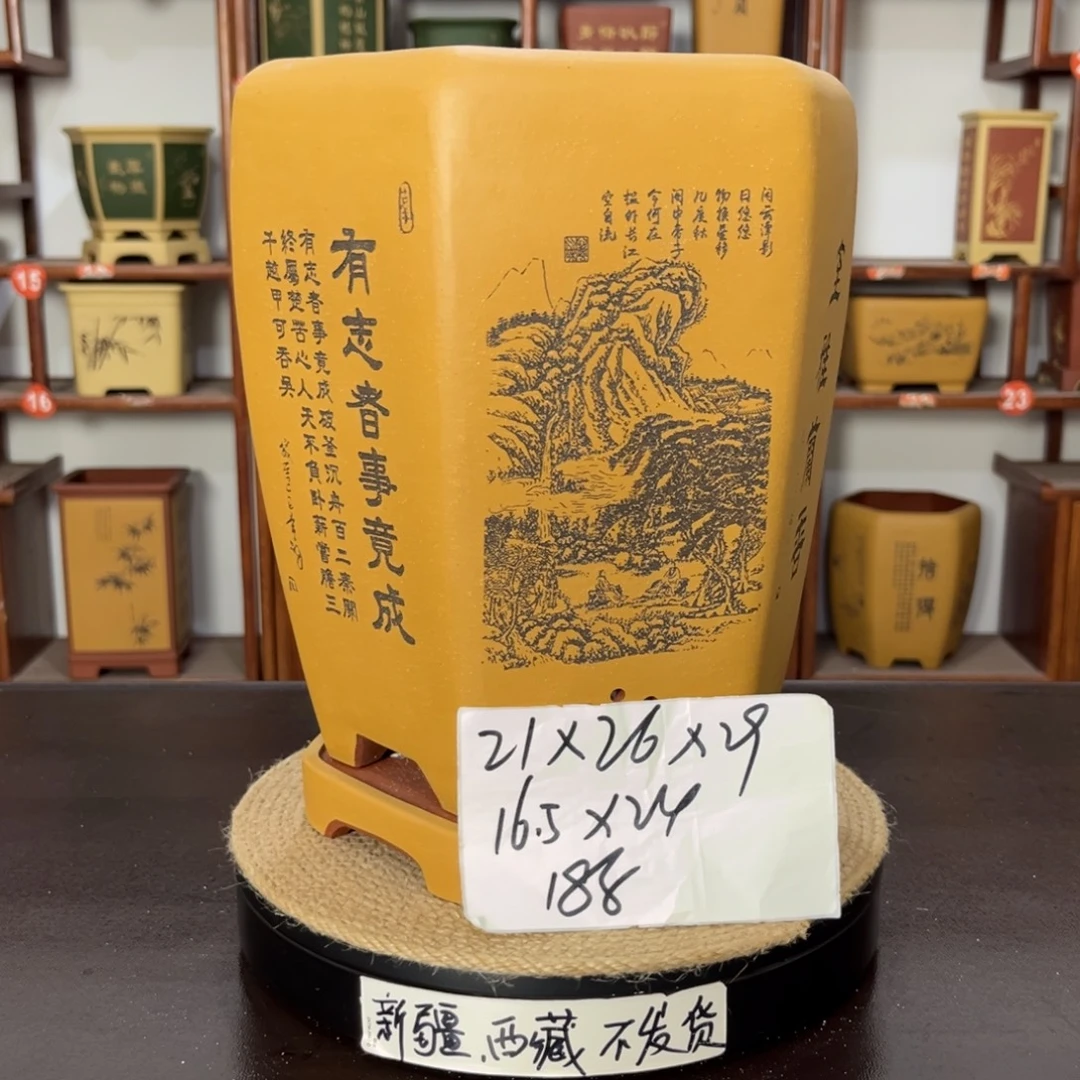 有志者事竟成
有志者事竟成破釜沉舟百二秦關
終屬楚苦心人天不負卧薪嘗膽三
千越甲可吞吴
闲云潭影
日悠悠
物换星移
几度秋
阁中帝子
今何在
槛外长江
空自流
21×26×29
16.5×24
188
新疆.西藏不发货
15
16
23